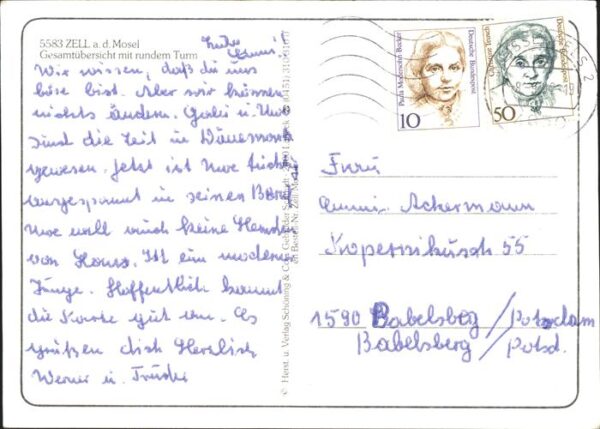 5583 ZELL a. d. Mosel
Gesamtübersicht mit rundem Turm
Liebe
Emmi!
Wir wissen, daß du uns
böse bist. Aber wir können
nichts ändern. Gabi u. Uwe
sind die Zeit in Dänemark
gewesen. Jetzt ist Uwe
eingespannt in seinen
Uwe will auch keine
von Hans. Ist ein moderner
Junge. Hoffentlich kommt
die Karte gut an. Es
grüßen dich Herzlich
Werner u. Trudi
© Herst. u. Verlag Schöning & Co + Gebrüder Schmidt
Paula Modersohn-Becker
Deutsche Bundespost
10
Deutsche Bundespost
50
Frau
Emmi Ackermann
Kopernikusch 55
1590 Babelsberg / Potsdam
Babelsberg / Potsd.